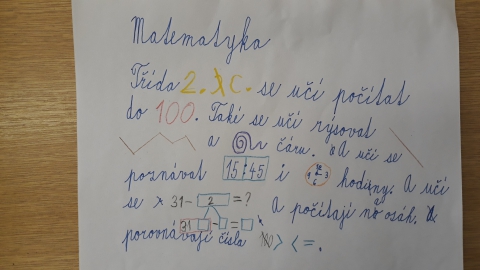 Matematyka
Třída 2. C. se učí počítat
do 100. Také se učí rýsovat
a čáru. A učí se
poznávat 15:45 i 12 3 6 9 hodiny. A učí
se 31- 2 =? A počítají na osách.
31 - =
porovnávají čísla > < =.